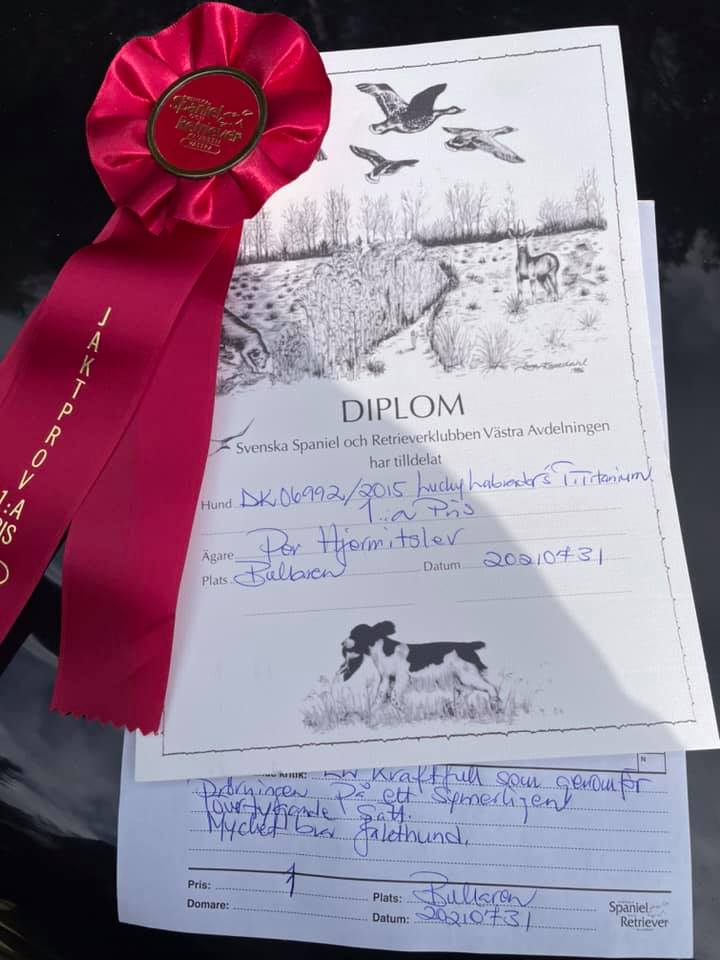 Spaniel
OCH
Retriever
KLUBBEN
JAKTPROV
1:A
DIPLOM
Svenska Spaniel och Retrieverklubben Västra Avdelningen
har tilldelat
Hund DK06992/2015 Lucky Labrador's Titanium
1:a Pris
Ägare Per Hjermitslev
Plats Bullaren Datum 20210731
N
kritik: kraftfull som genomför
Prövningen På ett Synnerligen
övertygande sätt.
Mycket bra fälthund.
Pris: 1
Plats: Bullaren
Domare:
Datum: 20210731
Spaniel
Retriever